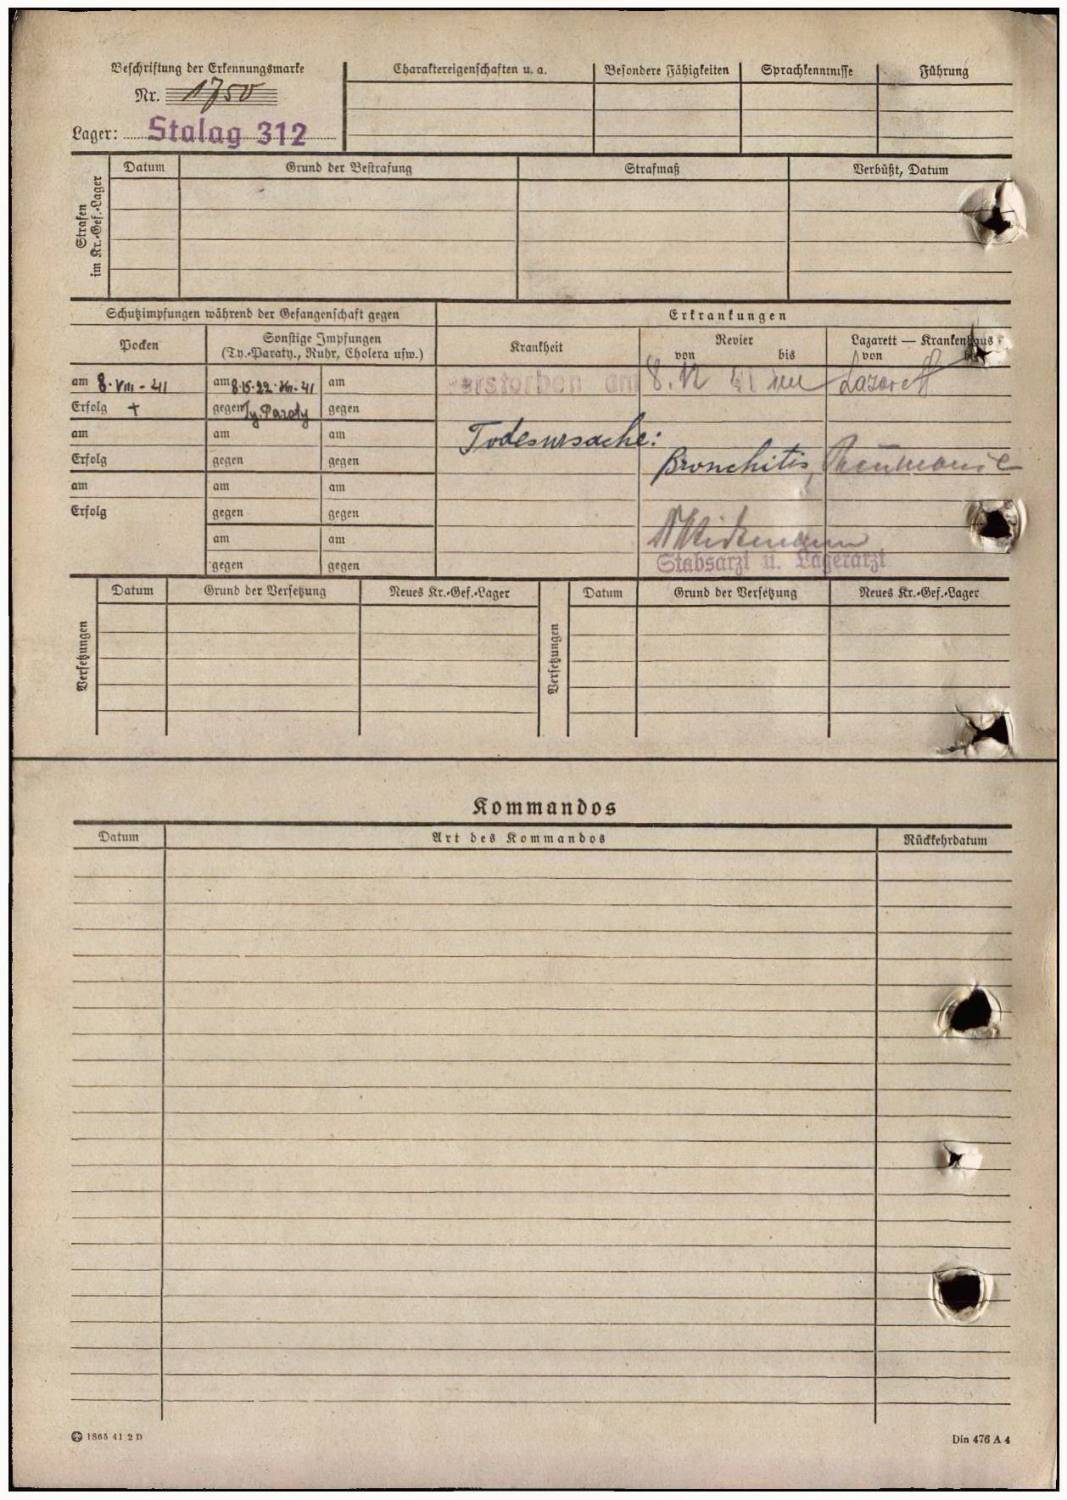 Beschriftung der Erkennungsmarke
Nr. 1750
Lager: Stalag 312
Charaktereigenschaften u. a.
Besondere Fähigkeiten
Sprachkenntnisse
Führung
Strafen im Kr.-Gef.-Lager
Datum
Grund der Bestrafung
Strafmaß
Verbüßt, Datum
Schutzimpfungen während der Gefangenschaft gegen
Erkrankungen
Pocken
Sonstige Impfungen
(Ty.-Paraty., Ruhr, Cholera usw.)
Krankheit
Revier
von bis
Lazarett — Krankenhaus
von
am 8. VIII - 41
am 8.15.22. VIII. 41
am
verstorben am 8. 12 41 im Lazarett
Erfolg +
gegen Ty. Paraty
gegen
am
am
am
Todesursache:
Erfolg
gegen
gegen
Bronchitis, Pneumonie
am
am
am
Erfolg
gegen
gegen
am
am
gegen
gegen
Stabsarzt u. Lagerarzt
Versetzungen
Datum
Grund der Versetzung
Neues Kr.-Gef.-Lager
Versetzungen
Datum
Grund der Versetzung
Neues Kr.-Gef.-Lager
Kommandos
Datum
Art des Kommandos
Rückkehrdatum
1865 41 2 D
Din 476 A 4